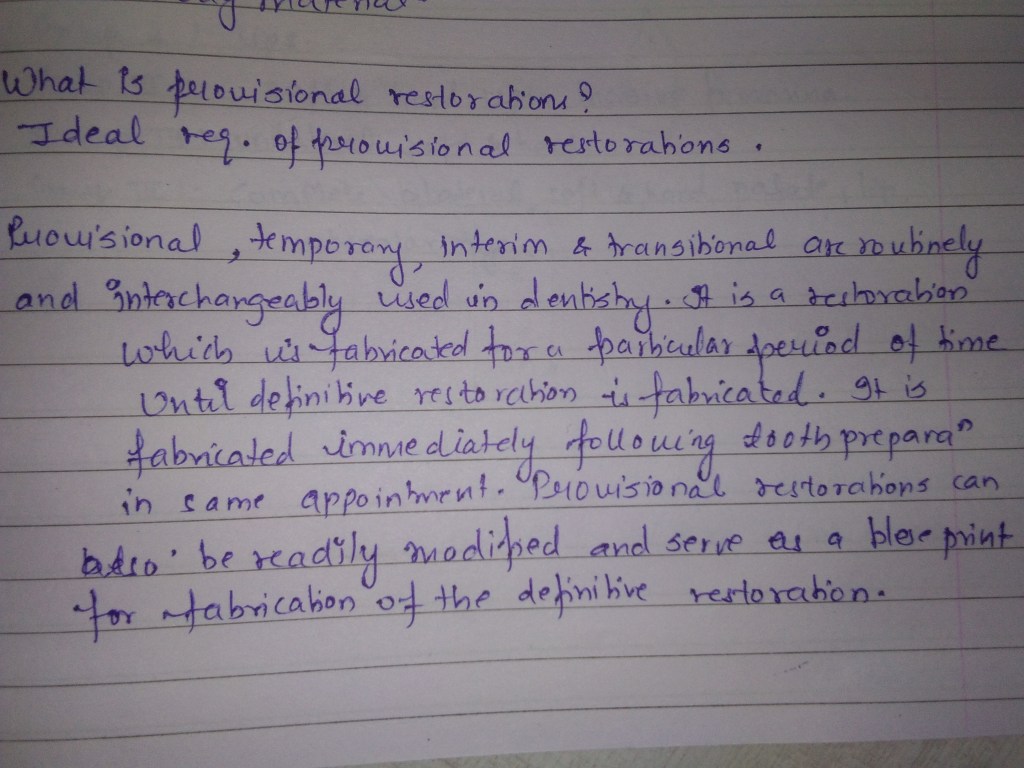 What is provisional restorations?
Ideal req. of provisional restorations.
Provisional, temporary, interim & transitional are routinely
and interchangeably used in dentistry. It is a restoration
which is fabricated for a particular period of time
until definitive restoration is fabricated. It is
fabricated immediately following tooth preparaⁿ
in same appointment. Provisional restorations can
also be readily modified and serve as a blue print
for fabrication of the definitive restoration.